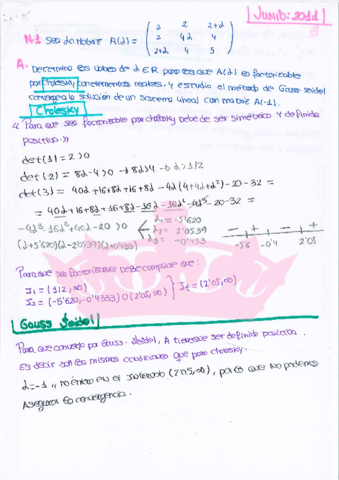 Junio: 2011
Nº1 Sea la matriz A(λ) = ( 2 2 2+λ
2 4λ 4
2+λ 4 5 )
A. Determina los valores de λ ∈ R para los que A(λ) es factorizable
por Cholesky con elementos reales, y estudia el método de Gauss Seidel
converge a la solución de un sistema lineal con matriz A(-1).
Cholesky
"Para que sea factorizable por cholesky debe de ser simétrica y definida
positiva."
det(1) = 2 > 0
det(2) = 8λ-4 > 0 → 8λ > 4 → λ > 1/2
det(3) = 40λ + 16+8λ + 16 + 8λ - 4λ(4+4λ+λ²) - 20 - 32 =
= 40λ + 16 + 8λ + 16 + 8λ - 16λ - 16λ² - 4λ³ - 20 - 32 =
-4λ³ - 16λ² + 40λ - 20 > 0
λ1 = -5'620
λ2 = 2'0539
λ3 = -0'433
(λ+5'620)(λ-2'0539)(λ+0'433)
- + - +
-5'6 -0'4 2'05
Para que sea factorizable debe cumplirse que:
I1 = (1/2, ∞)
I2 = (-5'620, -0'4333) U (2'05, ∞)
It = (2'05, ∞)
Gauss Seidel
Para que converja por Gauss-Seidel, A tiene que ser definida positiva.
Es decir son las mismas condiciones que para cholesky.
λ = -1, no entra en el intervalo (2'05, ∞), por lo que no podemos
asegurar la convergencia.